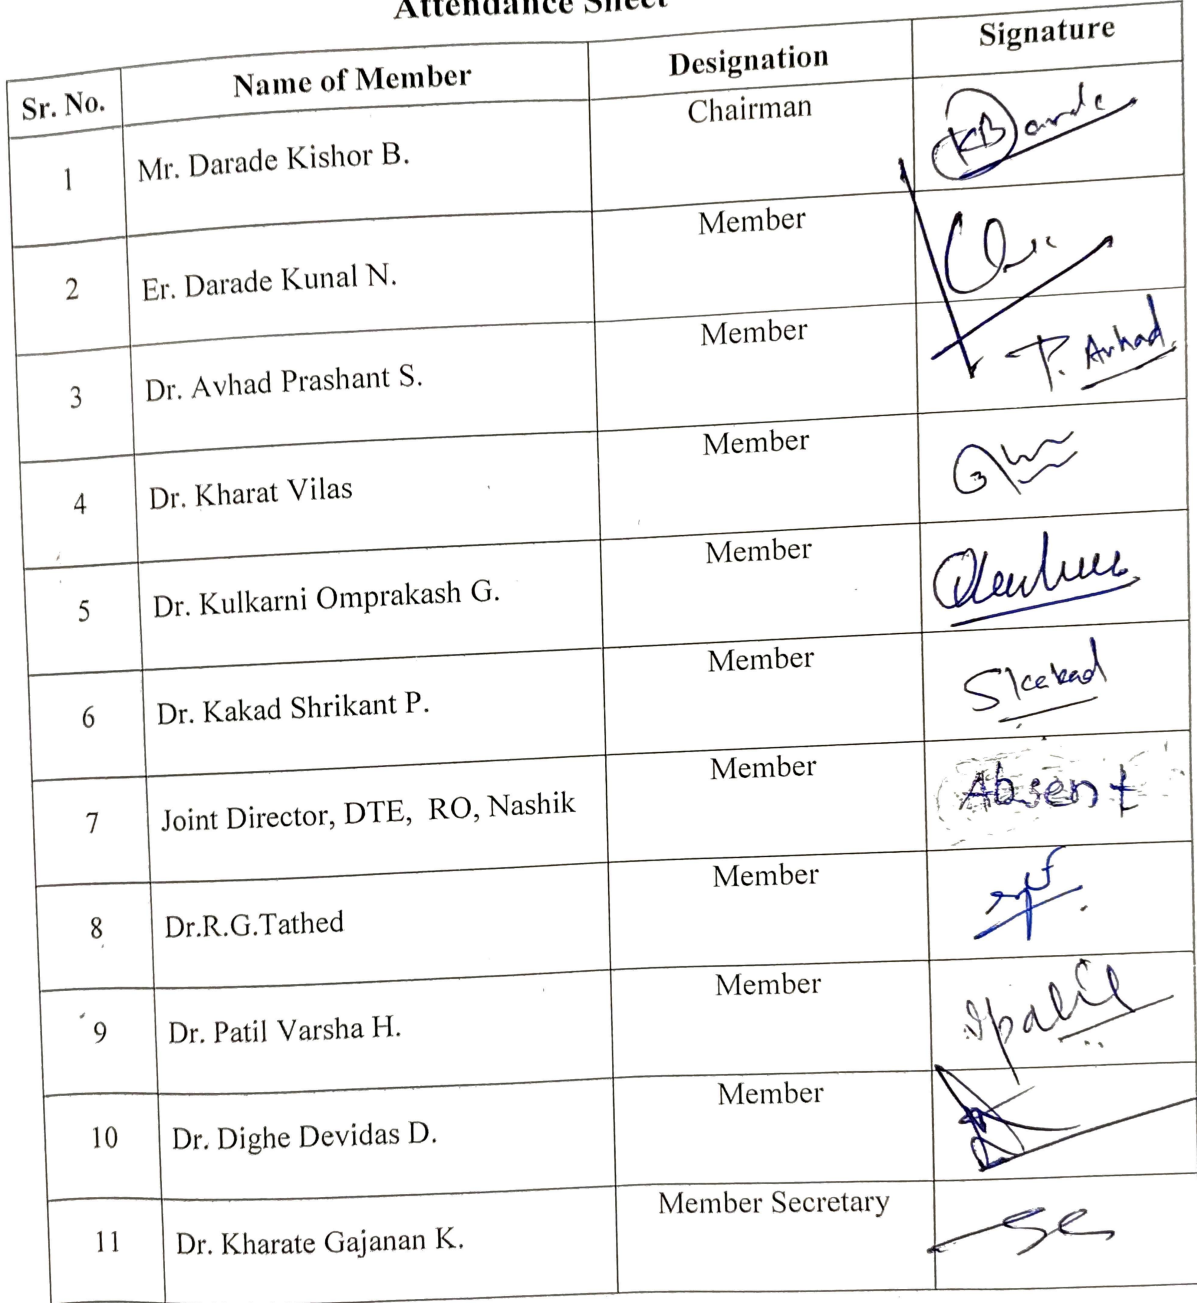 Attendance Sheet
Sr. No. Name of Member Designation Signature
1 Mr. Darade Kishor B. Chairman KBDarade
2 Er. Darade Kunal N. Member
3 Dr. Avhad Prashant S. Member P. Avhad
4 Dr. Kharat Vilas Member
5 Dr. Kulkarni Omprakash G. Member
6 Dr. Kakad Shrikant P. Member Skakad
7 Joint Director, DTE, RO, Nashik Member Absent
8 Dr.R.G.Tathed Member
9 Dr. Patil Varsha H. Member
10 Dr. Dighe Devidas D. Member
11 Dr. Kharate Gajanan K. Member Secretary